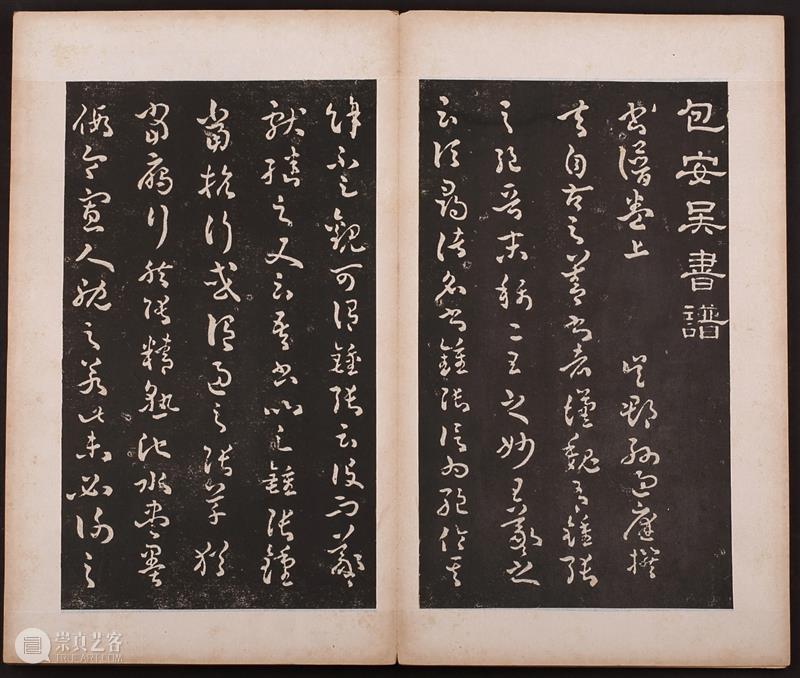 包安吳書譜
書譜卷上 吳郡孫過庭撰
夫自古之善書者漢魏有鍾張
之絕晉末稱二王之妙王羲之
云頃尋諸名書鍾張信為絕倫其
餘不足觀可謂鍾張云沒而羲
獻繼之又云吾書比之鍾張鍾
當抗行或謂過之張草猶
當雁行然張精熟池水盡墨
假令寡人耽之若此未必謝之
崇真艺客